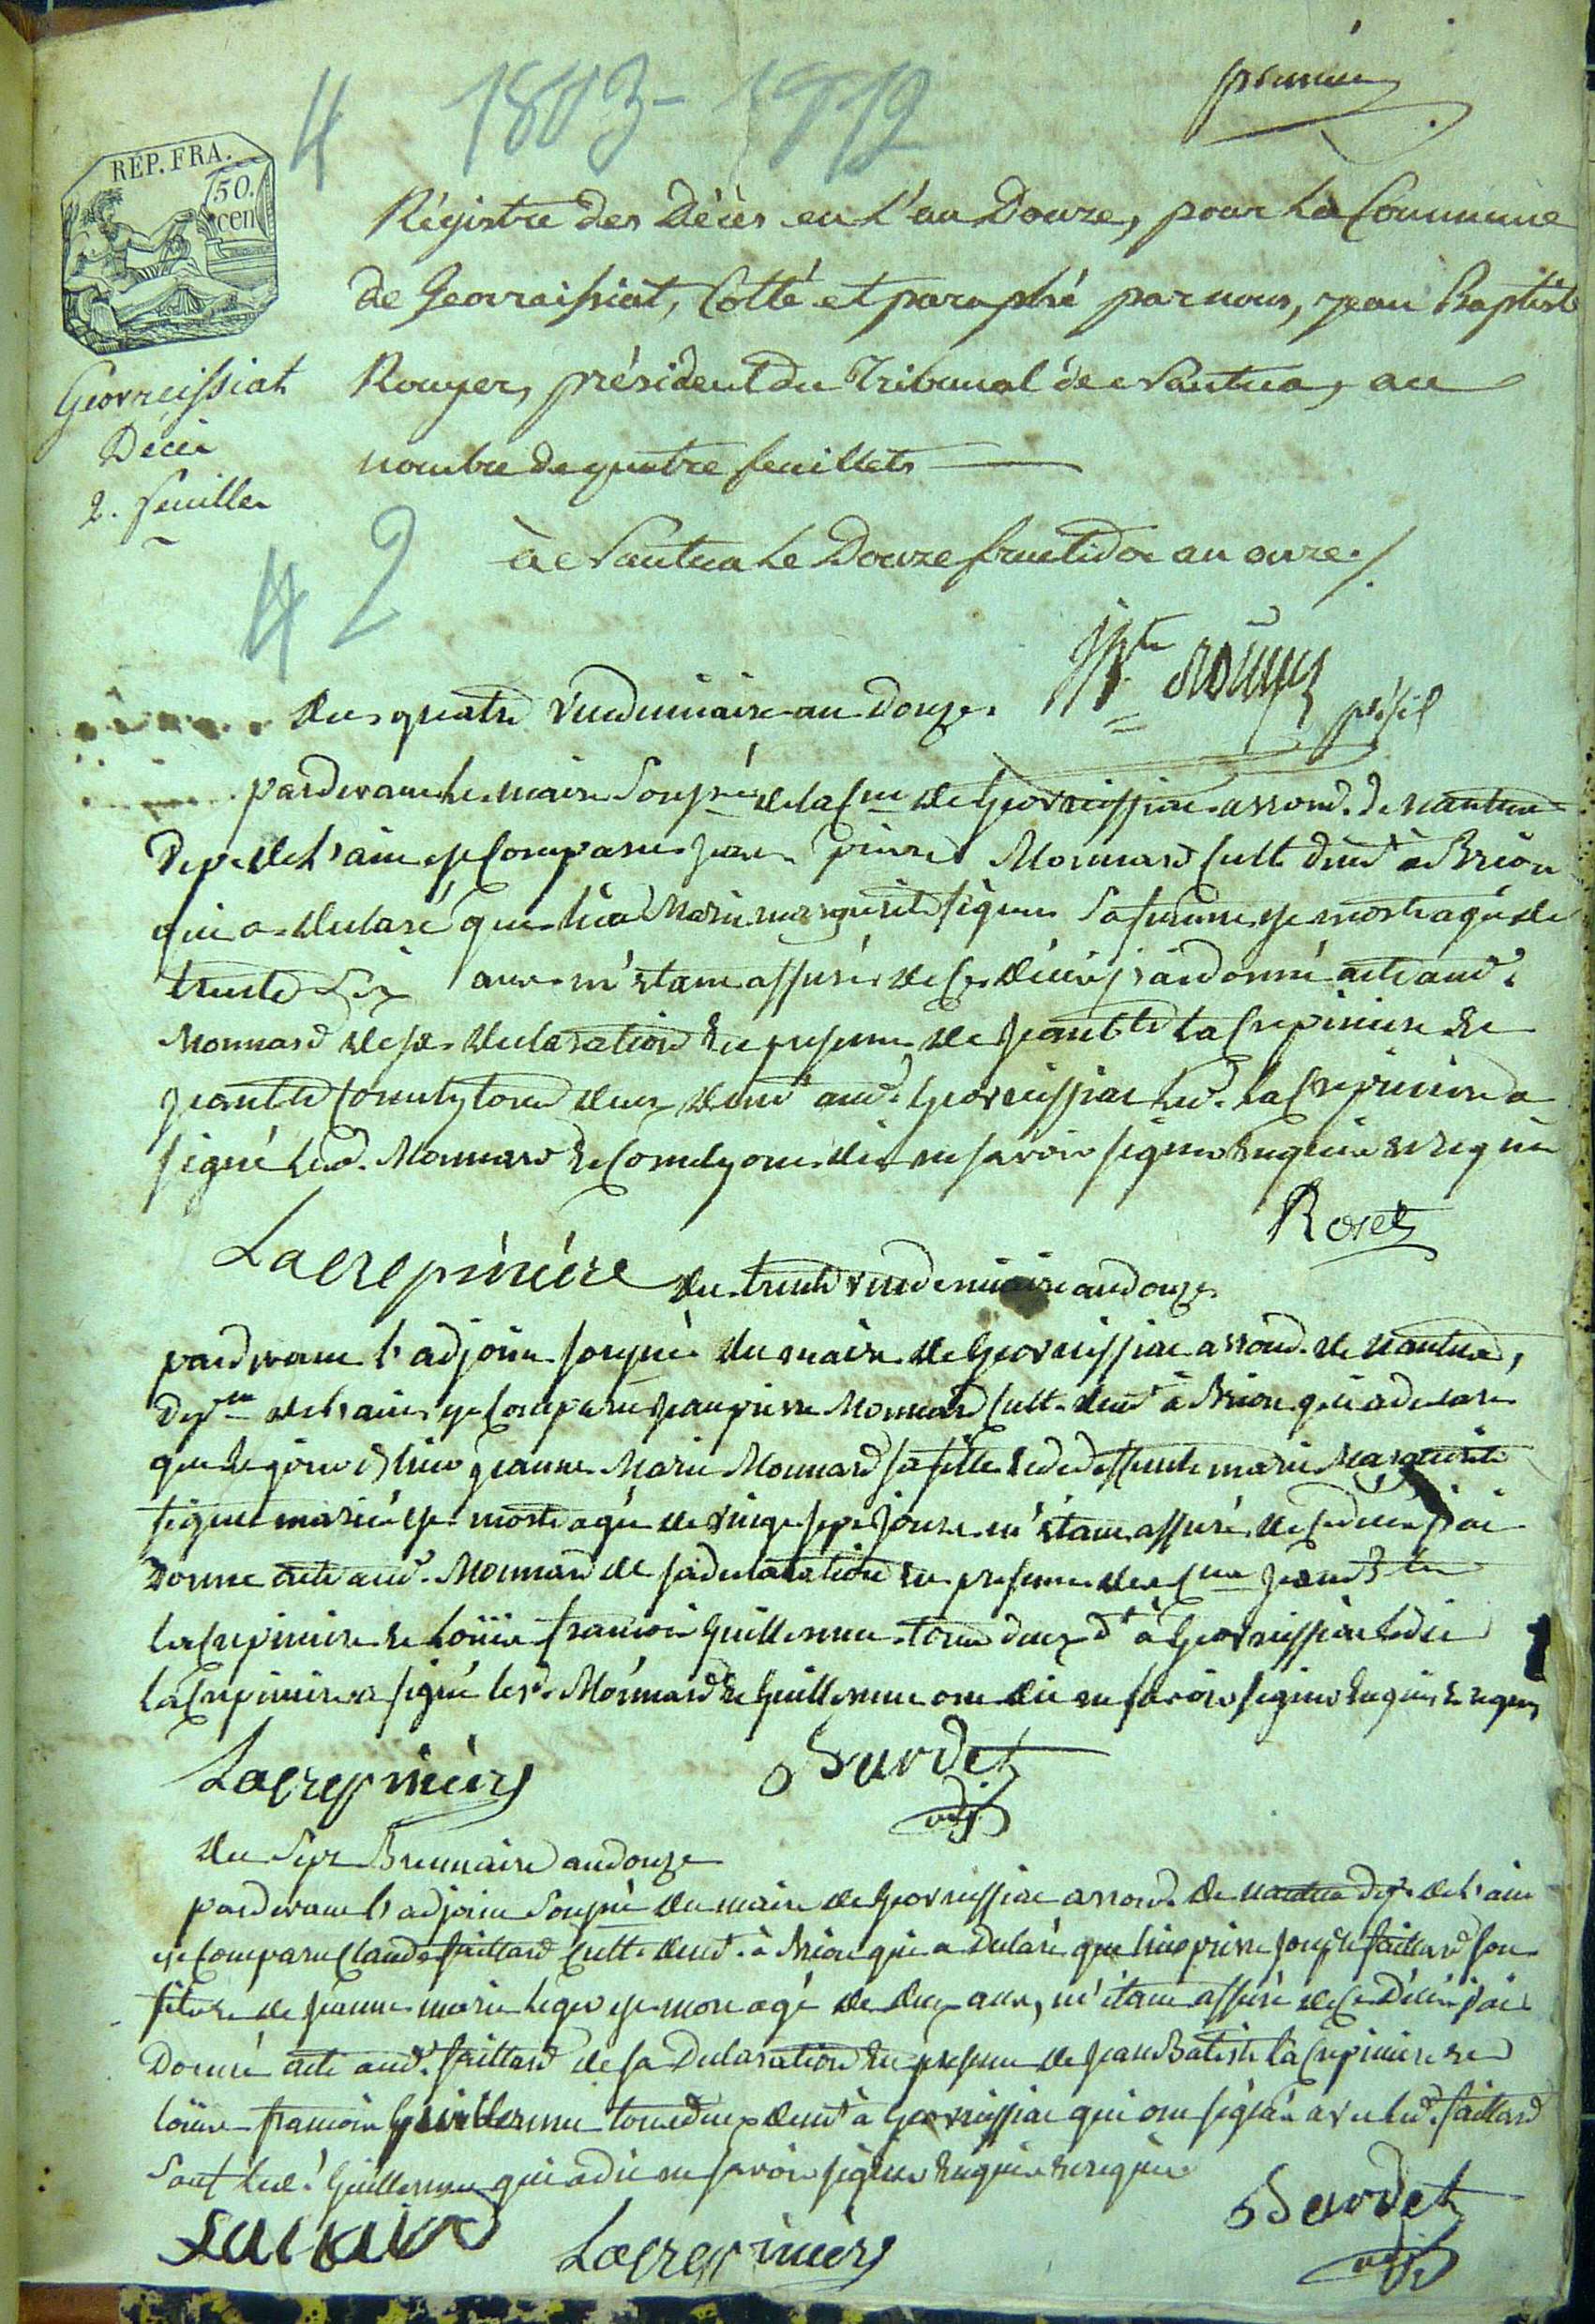 4 1803-1812
premier
REP. FRA.
50.
cen
Régistre des Décès en L'an Douze, pour La Commune
de Geovraissiat, Cotté et paraphé par nous, jean Baptiste
Rouyer, président du Tribunal de Nantua, au
nombre de quatre feuillets
Geovreissiat
Décès
2. feuilles
à Nantua Le Douze fructidor an onze./.
4 2
J Bte Rouyer présid
du quatre vendemiaire an douze
pardevant le maire sousné de la cne de Geovreissiat arrond. de nantua
dept de l'ain est comparu jean pierre Monnard cult. dem.t à Brion
qui a déclaré que hier Marie marguerite sa femme est morte agée de
trente six ans m'étant assuré de ce décès j'ai donné acte aud.
Monnard de sa déclaration en presence de jean bte Lacrepiniere et
jean bte tous deux dem.t aud. Geovreissiat led. Lacrepiniere a
signé led. Monnard et ont dit ne savoir signer enquis et requis
Roset
Lacrepiniere
du trente vendemiaire an douze
pardevant l'adjoint sousné du maire de Geovreissiat arrond. de nantua,
dept de l'ain est comparu jean pierre Monnard cult. dem.t à Brion qui a déclaré
que le jour d'hier jeanne Marie Monnard sa fille et de deffunte marie Marguerite
mariés est morte agée de vingt sept jours m'étant assuré de ce décès j'ai
donné acte aud. Monnard de sa déclaration en presence de jean Bte
Lacrepiniere et Loüis françois Guillerme tous deux dt à Geovreissiat ledit
Lacrepiniere a signé led. Monnard et Guillerme ont dit ne savoir signer enquis et requis
Lacrepiniere
Burdet
adj.
du sept Brumaire an douze
pardevant l'adjoint sousné du maire de Geovreissiat arrond. de nantua dept de l'ain
est comparu Claude faillard cult. dem.t à Brion qui a déclaré que hier pierre joseph faillard son
fils et de jeanne marie leger est mort agé de deux ans, m'étant assuré de ce décès j'ai
donné acte aud. faillard de sa déclaration en presence de jean Batiste Lacrepiniere et
Loüis françois Guillerme tous deux dem.t à Geovreissiat qui ont signé avec led. faillard
sauf led. Guillerme qui a dit ne savoir signer enquis et requis
Lacrepiniere
Burdet
adj.